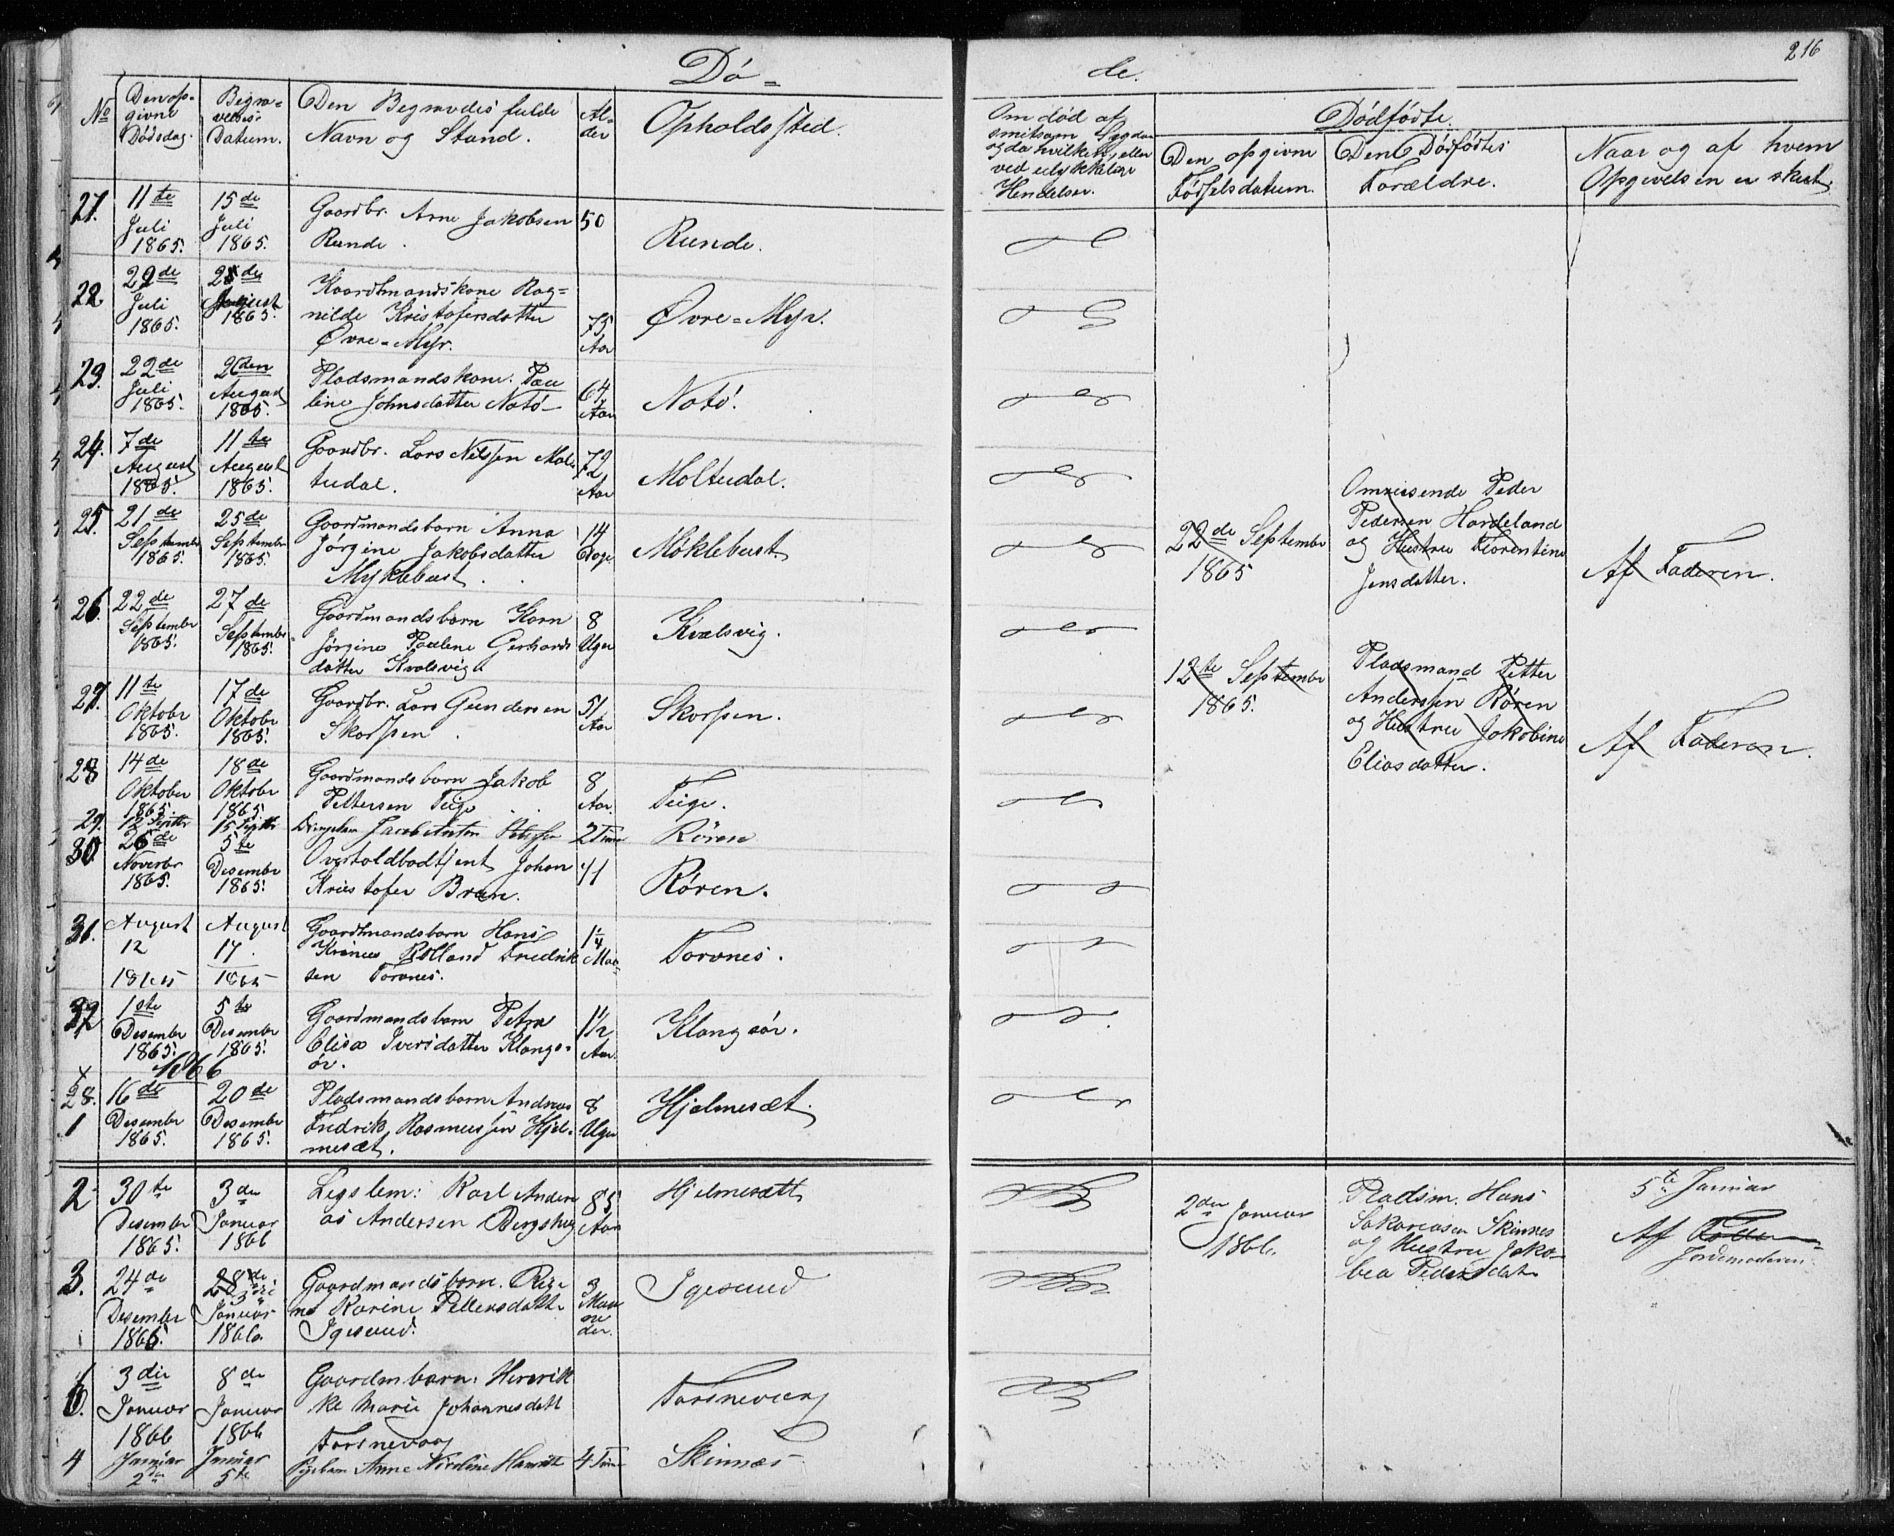 216
Dö-
de.
No
Den op-
givne
Dødsdag.
Begra-
velses-
Datum.
Den Begravedes fulde
Navn og Stand.
Al-
der
Opholdssted.
Om død af
smitsom Sygdom
og da hvilken, eller
ved ulykkelige
Hendelser.
Dødfödte.
Den opgivne
Fødselsdatum.
Den Dødfödtes
Forældre.
Naar og af hvem
Opgivelsen er skeet.
21.
11te
Juli
1865.
15de
Juli
1865.
Gaardbr. Arne Jakobsen
Runde.
50
Runde.
22.
29de
Juli
1865.
August
1865.
Gaardmandskone Rag=
nilde Kristofersdatter
Øvre=Myr.
75
Aar
Øvre=Myr.
23.
22de
Juli
1865.
August
1865.
Pladsmandskone. Pau
line Johnsdatter Notö
64
Aar
Notö.
24.
7de
August
1865.
11te
August
1865.
Gaardbr. Lars Nilssen Mol
tudal.
72
Aar
Moltudal.
25.
21de
September
1865.
25de
September
1865.
Gaardmandsbarn Anna
Jørgine Jakobsdatter
Myklebust
14
Dage
Möklebust
22de September
1865
Omreisende Peder
Pedersen Hardeland
og Hustru Florentine
Jensdatter.
Af Faderen.
26.
22de
September
1865.
27de
September
1865.
Gaardmandsbarn Karn
Jørgine Pauline Gerhards
datter Kvalsvig
8
Uger
Kvalsvig.
12te September
1865.
Pladsmand Petter
Anderssen Rören
og Hustru Jakobine
Eliasdatter.
Af Faderen.
27.
11te
Oktobr
1865.
17de
Oktobr
1865.
Gaardbr. Lars Gundersen
Skorpen
51
Aar
Skorpen.
28
14de
Oktober
1865.
18de
Oktobr
1865.
Gaardmandsbarn Jakob
Pettersen Teige
8
Aar.
Teige.
29.
12 Septbr
15 Septbr
Jacob Anton Petersen
2 Timer
Rören
30.
26de
Novembr
1865.
5te
Desember
1865.
Overtoldbodtjent Johan
Kristofer Bran.
71
Rören.
31.
August
12
1865
August
17.
1865
Gaardmandsbarn Hans
Rolland Fredrik
sen Torvnes.
Torvnes.
32
1ste
Desember
1865.
5te
Desember
1865.
Gaardmandsbarn Petra
Elise Iversdatter Klangs-
ör.
1½
Aar.
Klangsör.
1866
x
28.
1
16de
Desember
1865.
20de
Desember
1865.
Pladsmandsbarn Andreas
Fredrik Rasmussen Hjel-
mesæt.
8
Uger
Hjelmesæt.
2
30te
Desember
1865.
3de
Januar
1866
Legslem: Karl Andre
as Andersen Bergshug
85
Aar
Hjelmesætt
2den Januar
1866.
Pladsm. Hans
Sakariasen Skinnes
og Hustru Jako-
bea Pedersdat.
5te Januar
Af
Jordemoderen.
3.
24de
Desember
1865
Januar
1866
Gaardmandsbarn. Regi
ne Karine Pettersdatt.
Igesund.
3
Maa
ne
der.
Igesund
3die
Januar
1866
8de
Januar
1866
Gaardmbarn. Henrik
ke Marie Johannesdatt
Torsnevaag
Torsnevaag
4
Januar
2den
Januar
5te
Pigebarn Anne Nicoline Hansdtt
4 Timer
Skinnæs